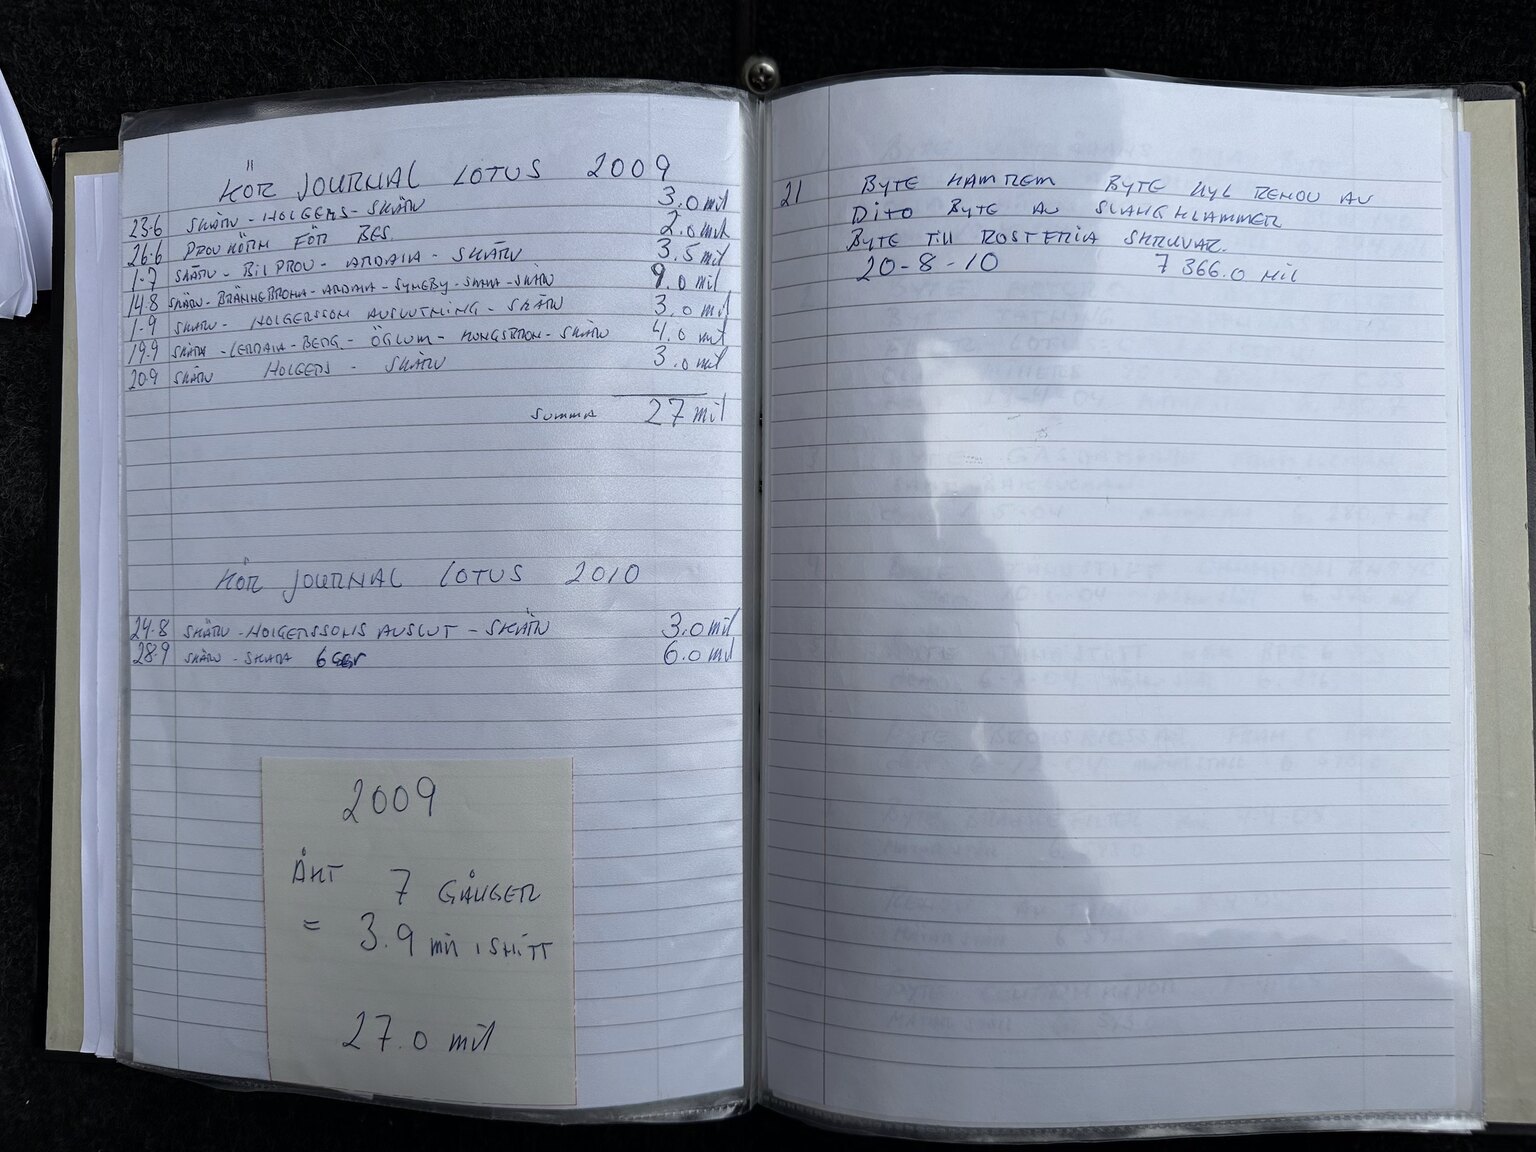 KÖR JOURNAL LOTUS 2009
23.6 SKÄRV - HOLGERS - SKÄRV 3.0 mil
26.6 PROVKÖRN FÖR BES. 2.0 mil
1.7 SKÄRV - BILPROV - ARDALA - SKÄRV 3.5 mil
14.8 SKÄRV - BRÄNNEBRONA - ARDALA - SYNEBY - SKARA - SKÄRV 9.0 mil
1.9 SKÄRV - HOLGERSSON AVSLUTNING - SKÄRV 3.0 mil
19.9 SKÄRV - LERDALA - BERG - ÖGLUM - KUNGSBRON - SKÄRV 4.0 mil
20.9 SKÄRV HOLGERS - SKÄRV 3.0 mil
SUMMA 27 mil
KÖR JOURNAL LOTUS 2010
24.8 SKÄRV - HOLGERSSONS AVSLUT - SKÄRV 3.0 mil
28.9 SKÄRV - SKARA 6 GGR 6.0 mil
2009
ÅKT 7 GÅNGER
= 3.9 mil I SNITT
27.0 mil
21 BYTE KAMREM BYTE KYL RENOV AV
DITO BYTE AV SLANGKLAMMER
BYTE TILL ROSTFRIA SKRUVAR.
20-8-10 7 366.0 MIL